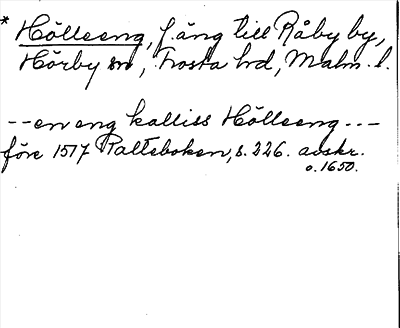 * Hölleeng, f. äng till Råby by,
Hörby sn, Frosta hd, Malm. l.
-- en eng kalliss Hölleeng ---
före 1517 Palteboken, s. 226. avskr.
o. 1650.